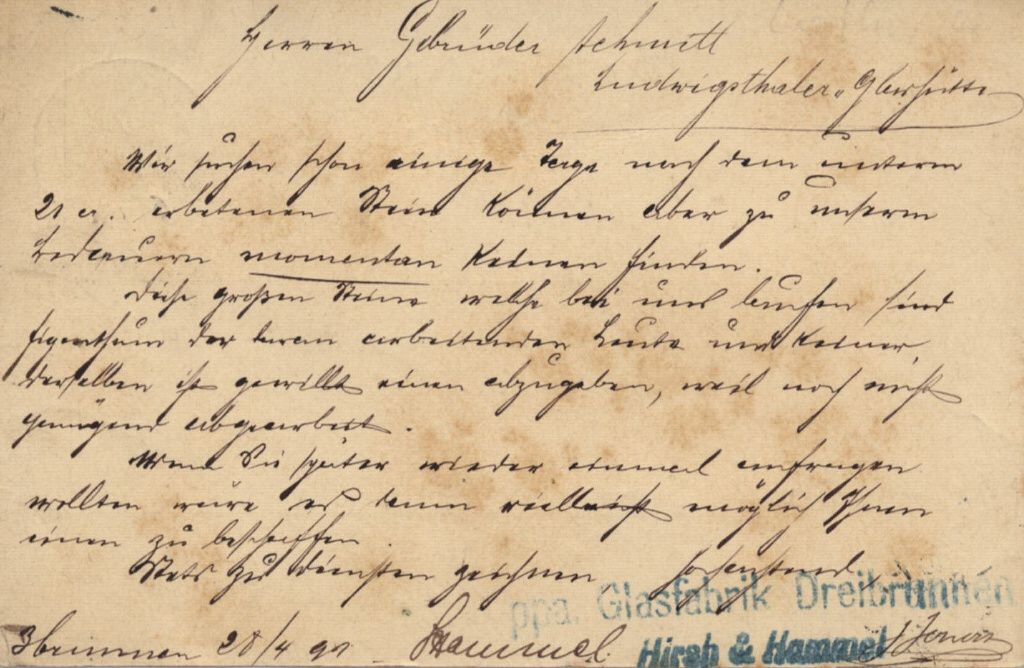 Herren Gebrüder Schmitt
Ludwigsthaler Glashütte
Wir suchen schon einige Tage nach dem unterm
21 cr. erbetenen Stein können aber zu unserm
Bedauern momentan keinen finden.
Diese großen Steine welche bei uns laufen sind
Eigenthum der daran arbeitenden Leute und keiner
derselben ist gewillt einen abzugeben, weil noch nicht
genügend abgearbeit.
Wenn Sie später wieder einmal anfragen
wollten wäre es dann vielleicht möglich Ihnen
einen zu beschaffen.
Stets zu Diensten zeichnen hochachtend
ppa. Glasfabrik Dreibrunnen
Hirsh & Hammel
3brunnen 28/4 90 Hammel